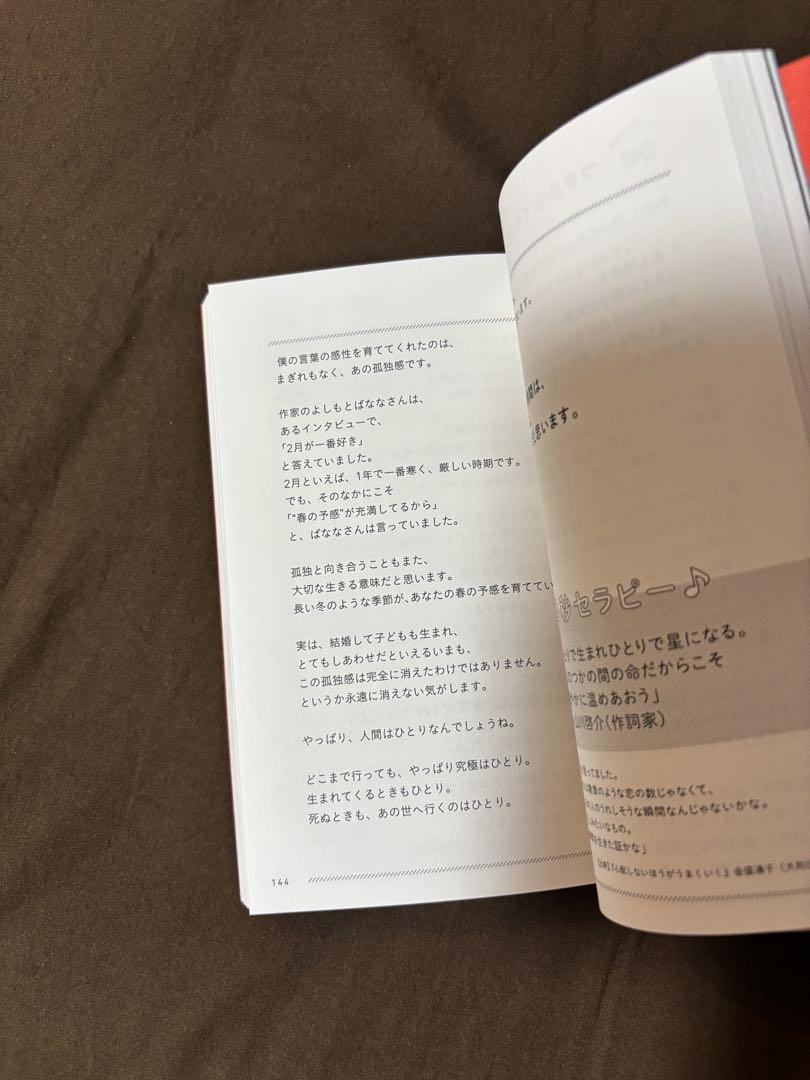 僕の言葉の感性を育ててくれたのは、
まぎれもなく、あの孤独感です。
作家のよしもとばななさんは、
あるインタビューで、
「2月が一番好き」
と答えていました。
2月といえば、1年で一番寒く、厳しい時期です。
でも、そのなかにこそ
「“春の予感”が充満してるから」
と、ばななさんは言っていました。
孤独と向き合うこともまた、
大切な生きる意味だと思います。
長い冬のような季節が、あなたの春の予感を育ててい
実は、結婚して子どもも生まれ、
とてもしあわせだといえるいまも、
この孤独感は完全に消えたわけではありません。
というか永遠に消えない気がします。
やっぱり、人間はひとりなんでしょうね。
どこまで行っても、やっぱり究極はひとり。
生まれてくるときもひとり。
死ぬときも、あの世へ行くのはひとり。
144
ます。
間は、
思います。
秒セラピー♪
とりで生まれひとりで星になる。
のつかの間の命だからこそ
やかに温めあおう」
山川啓介(作詞家)
言ってました。
は教里のような恋の数じゃなくて、
の人のうれしそうな瞬間なんじゃないかな。
みたいなもの。
を生きた証かな」
『心配しないほうがうまくいく』金盛浦子(大和